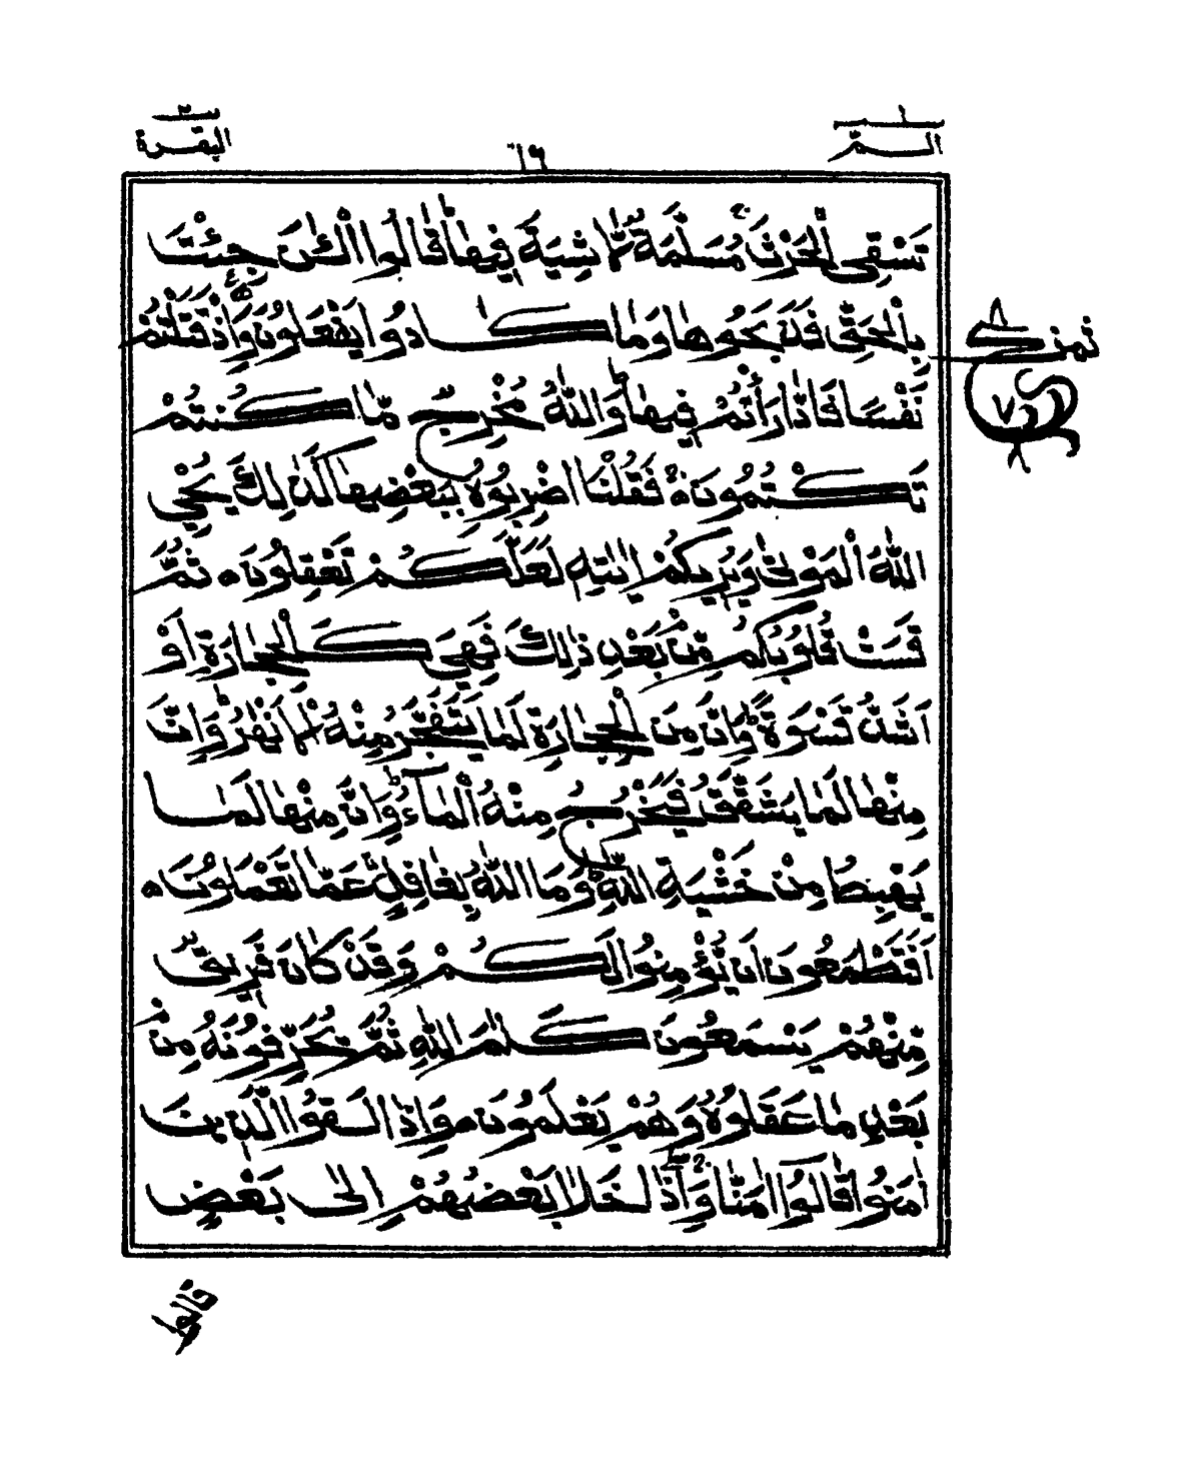 ١
الٓمّٓ
١٦
٢
البقرة
تَسْقِى الْحَرْثَ مُسَلَّمَةٌ لَّا شِيَةَ فِيهَا قَالُوا الْـٰٔنَ جِئْتَ
بِالْحَقِّ فَذَبَحُوهَا وَمَا كَادُوا يَفْعَلُونَ وَاِذْ قَتَلْتُمْ
نَفْسًا فَادَّارَأْتُمْ فِيهَا وَاللّٰهُ مُخْرِجٌ مَّا كُنتُمْ
تَكْتُمُونَ ه فَقُلْنَا اضْرِبُوهُ بِبَعْضِهَا كَذٰلِكَ يُحْيِ
اللّٰهُ الْمَوْتٰى وَيُرِيكُمْ اٰيٰتِهِ لَعَلَّكُمْ تَعْقِلُونَ ه ثُمَّ
قَسَتْ قُلُوبُكُمْ مِّنْ بَعْدِ ذٰلِكَ فَهِيَ كَالْحِجَارَةِ اَوْ
اَشَدُّ قَسْوَةً وَاِنَّ مِنَ الْحِجَارَةِ لَمَا يَتَفَجَّرُ مِنْهُ الْاَنْهٰرُ وَاِنَّ
مِنْهَا لَمَا يَشَّقَّقُ فَيَخْرُجُ مِنْهُ الْمَآءُ وَاِنَّ مِنْهَا لَمَا
يَهْبِطُ مِنْ خَشْيَةِ اللّٰهِ وَمَا اللّٰهُ بِغَافِلٍ عَمَّا تَعْمَلُونَ ه
اَفَتَطْمَعُونَ اَن يُّؤْمِنُوا لَكُمْ وَقَدْ كَانَ فَرِيقٌ
مِّنْهُمْ يَسْمَعُونَ كَلٰمَ اللّٰهِ ثُمَّ يُحَرِّفُونَهُ مِنْ
بَعْدِ مَا عَقَلُوهُ وَهُمْ يَعْلَمُونَ ه وَاِذَا لَقُوا الَّذِينَ
اٰمَنُوا قَالُوٓا اٰمَنَّا وَاِذَا خَلَا بَعْضُهُمْ اِلٰى بَعْضٍ
قالوا